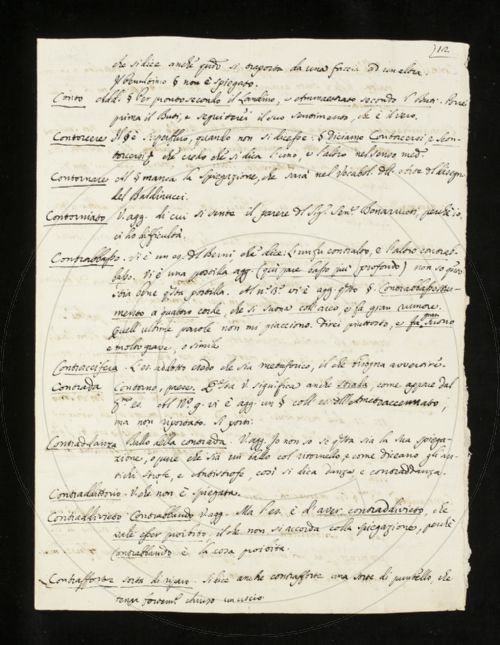 )12
che si dice anche quando si trasporta da una faccia ad un'altra.
Il penultimo § non è spiegato.
Conto add. § Per pronto secondo il Landino, o ammaestrato secondo l'Buti. Porrei
prima il Buti, e seguiterei il suo sentimento, che è il vero.
Contorcere Il § è superfluo, quando non si dicesse: § Diciamo Contorcersi e Scon-
torcersi che credo che si dica l'uno, e l'altro nel senso med.º
Contornare Al § manca la spiegazione, che sarà nel Vocabol. dell'arte del disegno
del Baldinucci.
Contorniato V. agg. di cui si sente il parere del Sig. Sen.e Bonarruoti, perchè io
ci ho difficultà.
Contrabbasso. Vi è un es. del Berni, che dice: L'un fa contralto, e l'altro contrab-
basso. Vi è una postilla agg. (quì pare basso più profondo) non so se
stia bene questa postilla. Al n.º vi è agg. questo §. Contrabbasso stru-
mento a quattro corde, che si suona coll'arco e fa gran rumore.
Quell'ultime parole non mi piacciono. Direi piuttosto, e fa suono
e molto grave, o simile
Contraccifera L'es. addotto credo che sia metaforico, il che bisogna avvertire.
Contrada Contorno, paese. Questa V. significa anche Strada, come appare dal
es. Al N.º 9. vi è agg. un § coll'es. dell'
ma non riportato. Si porti.
Contraddanza Ballo alla contrada V. agg. Io non so se questa sia la sua spiega-
zione, oppure che sia un ballo col ritornello e come dicono gli an-
tichi Strofe, e Antistrofe, così si dica danza e contraddanza.
Contraddittorio. V. che non è spiegata.
Contraddivieto Contrabbando V. agg. Ma l'es. è d'aver contraddivieto, che
vale esser proibito, il che non si accorda colla spiegazione, perchè
contrabbando è la cosa proibita.
Contrafforte sorta di riparo. Si dice anche contrafforte una sorte di puntello, che
tenga fortem.e chiuso un uscio